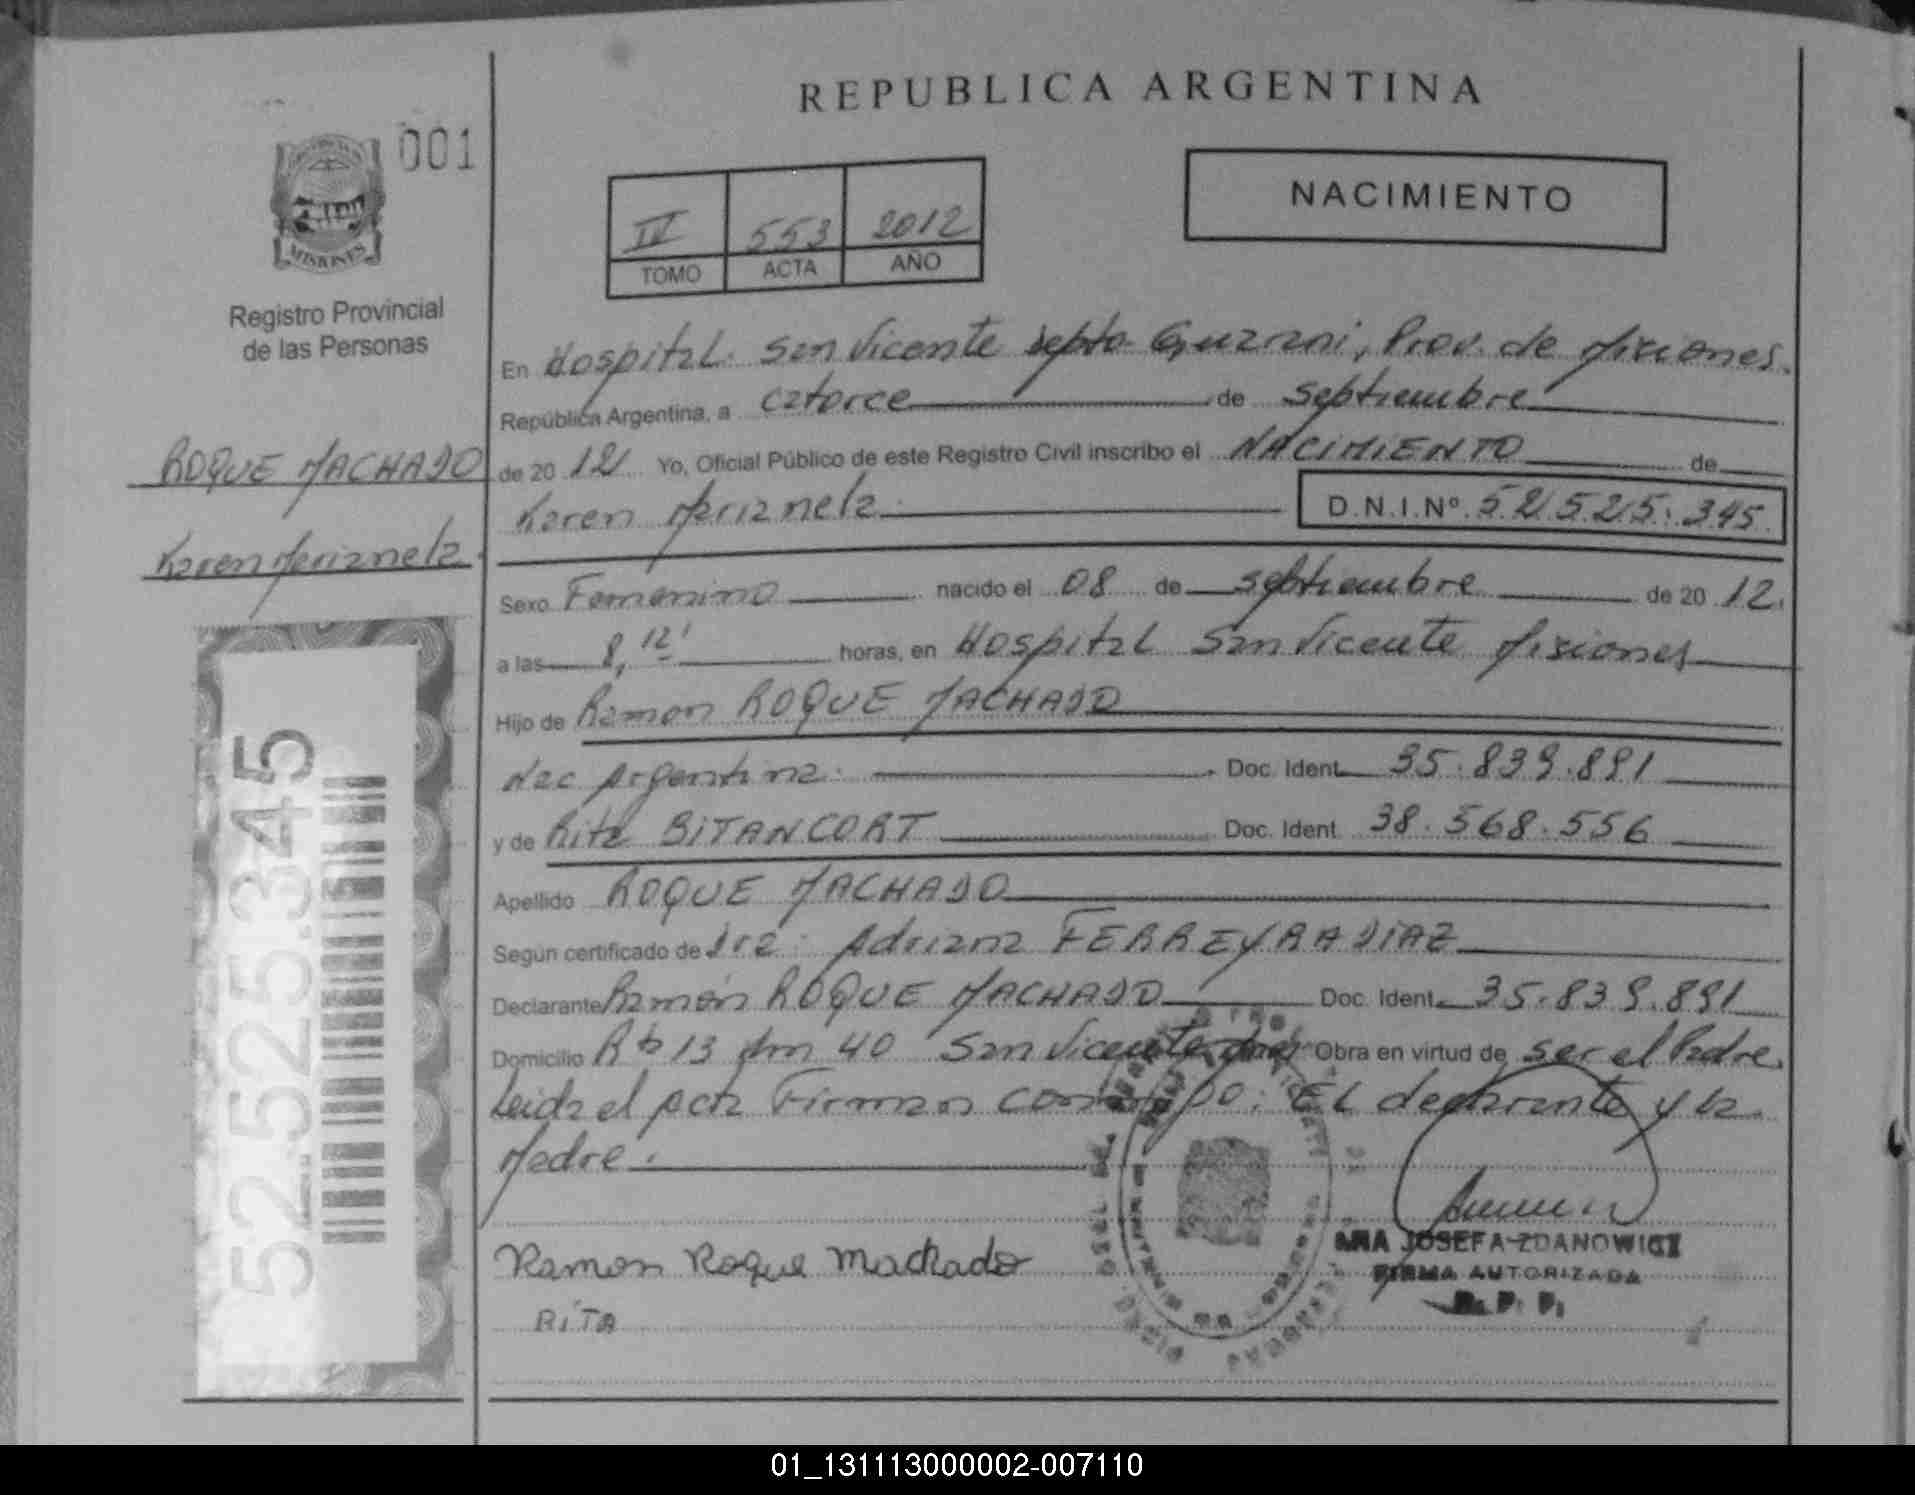 REPUBLICA ARGENTINA
001
NACIMIENTO
IV 553 2012
TOMO ACTA AÑO
MISIONES
Registro Provincial
de las Personas
En Hospital San Vicente Depto Guarani, Prov. de Misiones.
República Argentina, a catorce de septiembre
de 20 12 Yo, Oficial Público de este Registro Civil inscribo el NACIMIENTO de
ROQUE MACHADO
Karen Marianela. D.N.I.Nº. 52.525.345.
Karen Marianela.
Sexo Femenino nacido el 08 de septiembre de 20 12.
a las 8,12' horas, en Hospital San Vicente Misiones
Hijo de Ramon ROQUE MACHADO
Nac Argentina. Doc. Ident. 35.839.891
y de Rita BITANCORT Doc. Ident. 38.568.556
Apellido ROQUE MACHADO
Según certificado de Dra. Adriana FERREYRA DIAZ
Declarante Ramón ROQUE MACHADO Doc. Ident. 35.839.891
Domicilio Rta 13 Km 40 San Vicente Obra en virtud de ser el Padre.
Leida el acta Firman conmigo: El declarante y la
Madre.
52.525.345
Ramon Roque Machado
RITA
ANA JOSEFA ZDANOWICZ
FIRMA AUTORIZADA
R. P. P.
01_131113000002-007110